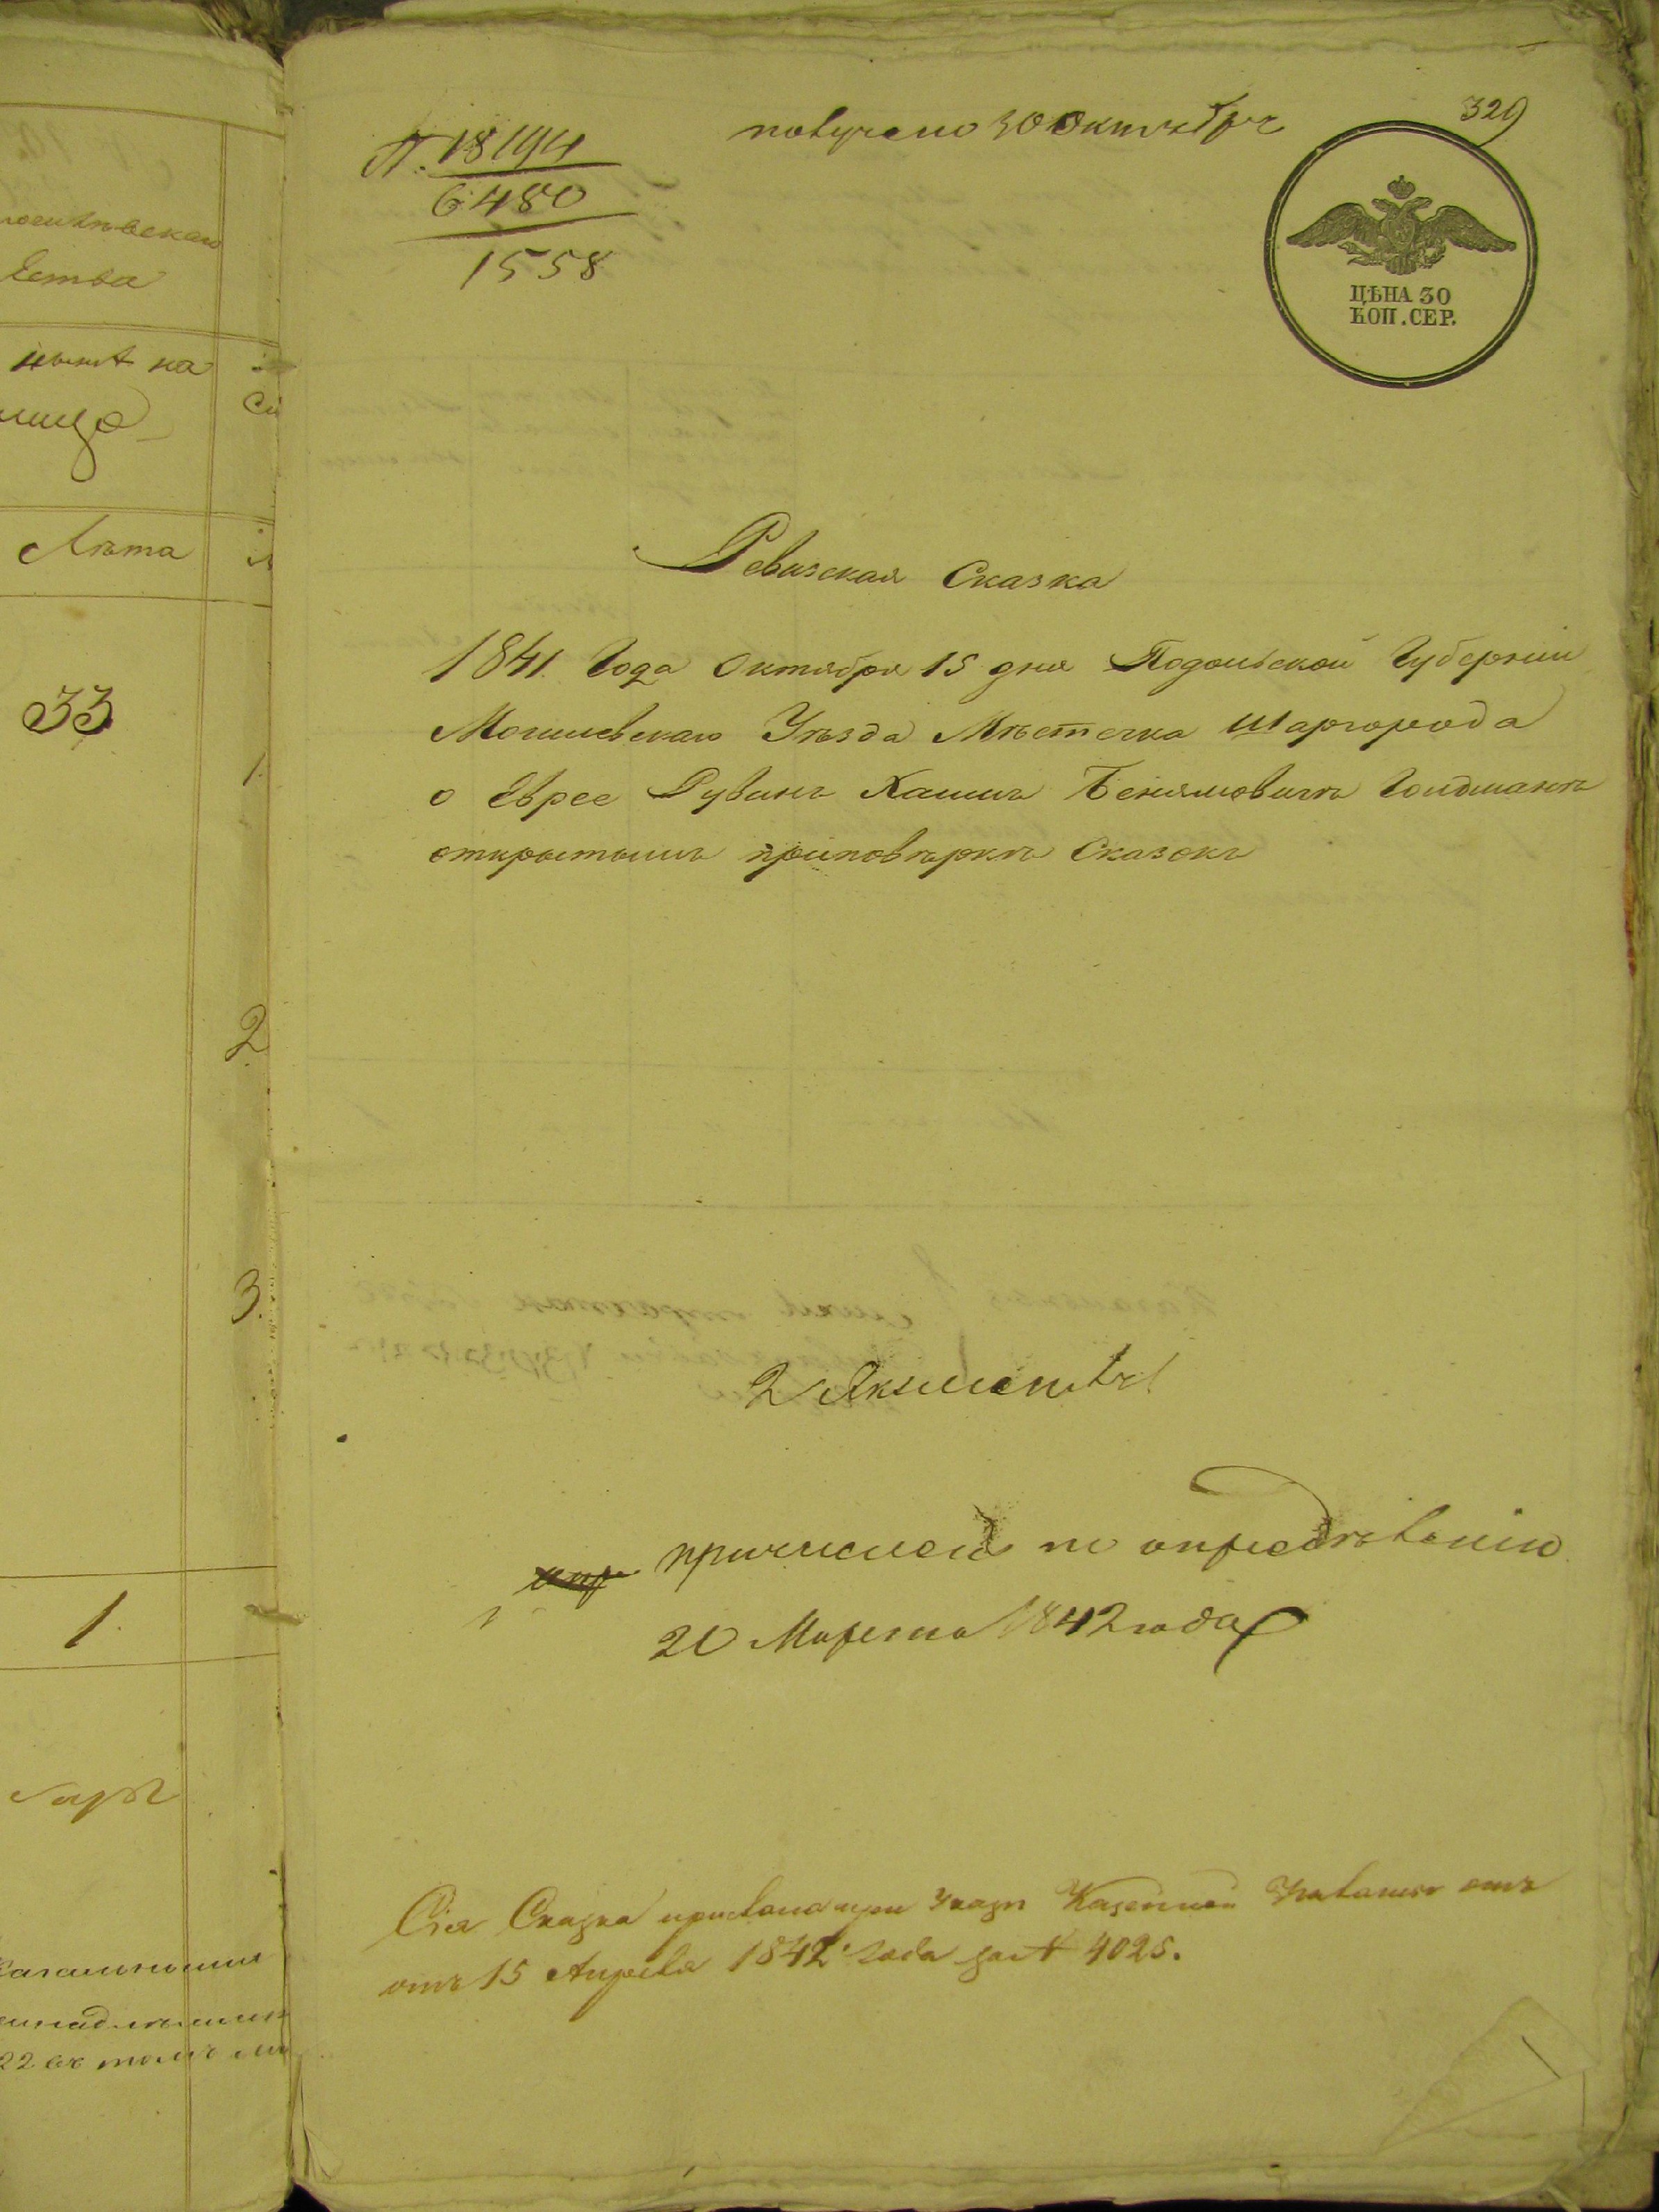 329
получено 30 Октября
№ 18194
6480
1558
ЦѢНА 30
КОП. СЕР.
Ревизская Сказка
1841. Года Октября 15 дня Подольской Губерніи
Могилевскаго Уѣзда Мѣстечка Шаргорода
о Еврее Рувинъ Хаимъ Беніямовичъ Гольдманъ
открытымъ приповѣркѣ Сказокъ
2 Экземпляръ
причислена по опредѣленію
20 Марта 1842 года
Сія Сказка прислана при Указѣ Казенной Палаты отъ
отъ 15 Апреля 1842 года за № 4025.
Лѣта
33
1.
2
3.
1.